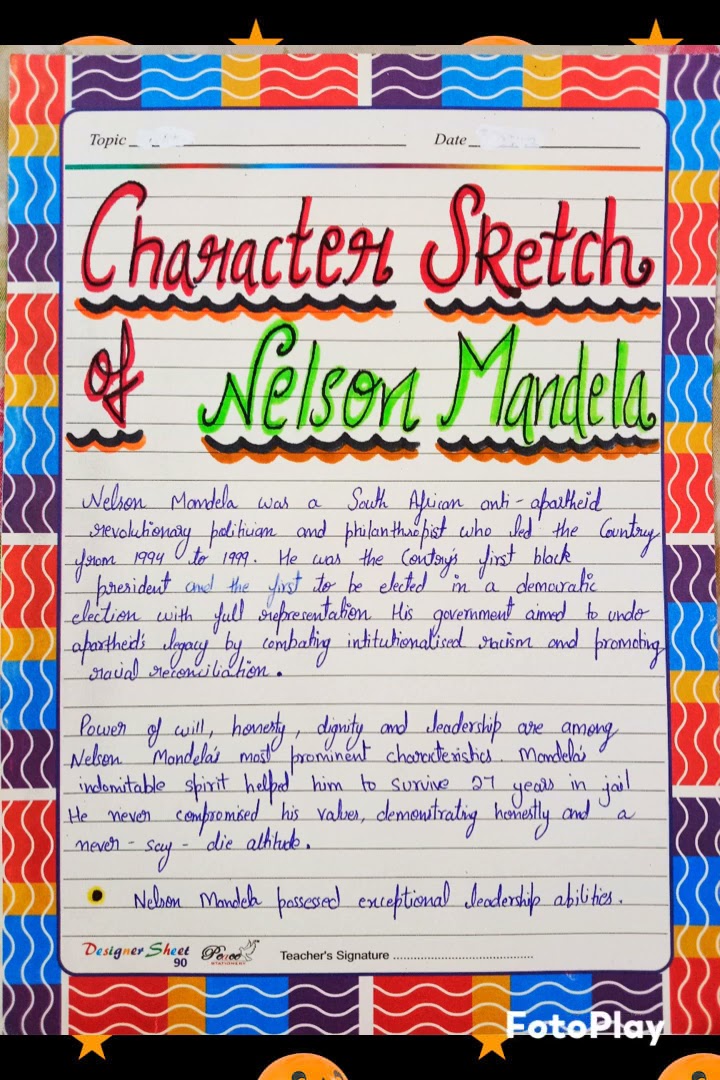 Topic Date
Character Sketch
of Nelson Mandela
Nelson Mandela was a South African anti-apartheid
revolutionary politician and philanthropist who led the Country
from 1994 to 1999. He was the Contry's first black
president and the first to be elected in a democratic
election with full representation His government aimed to undo
apartheid's legacy by combating intitutionalised racism and promoting
racial reconciliation.
Power of will, honesty, dignity and leadership are among
Nelson Mandela's most prominent characteristics. Mandela's
indomitable spirit helped him to survive 27 years in jail
He never compromised his values, demonstrating honestly and a
never-say-die attitude.
• Nelson Mandela possessed exceptional leadership abilities.
Designer Sheet
90
STATIONERY
Teacher's Signature
FotoPlay